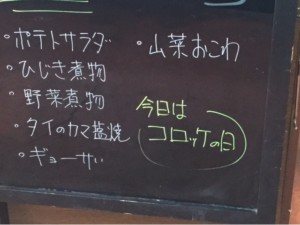 ・ポテトサラダ
・ひじき煮物
・野菜煮物
・タイのカマ塩焼
・ギョーザ
・山菜おこわ
今日は
コロッケの日